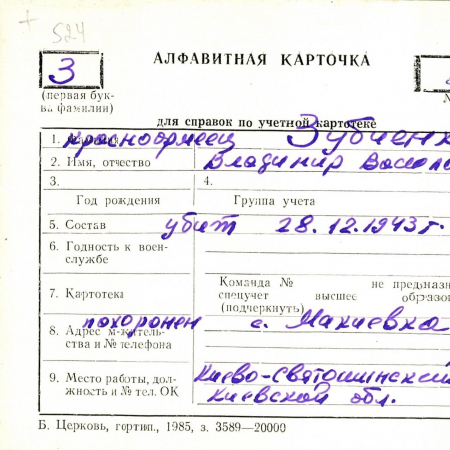 524
З
АЛФАВИТНАЯ КАРТОЧКА
(первая бук-
ва фамилии)
№
для справок по учетной картотеке
1. красноармеец Зубченк
2. Имя, отчество Владимир Васил
3. 4.
Год рождения Группа учета
5. Состав убит 28.12.1943 г.
6. Годность к воен-
службе
Команда № не предназн
7. Картотека спецучет высшее образо
(подчеркнуть)
похоронен с. Макиевка
8. Адрес житель-
ства и № телефона
9. Место работы, дол- Киево-Святошинский
жность и № тел. ОК Киевской обл.
Б. Церковь, гортип., 1985, з. 3589—20000